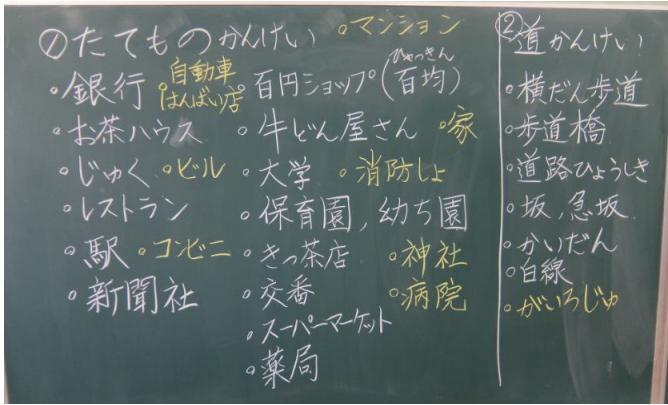 ①たてものかんけい 。マンション
。銀行 。自動車はんばい店 。百円ショップ(百均)ひゃっきん
。お茶ハウス 。牛どん屋さん 。家
。じゅく 。ビル 。大学 。消防しょ
。レストラン 。保育園,幼ち園
。駅 。コンビニ 。きっ茶店 。神社
。新聞社 。交番 。病院
。スーパーマーケット
。薬局
②道かんけい
。横だん歩道
。歩道橋
。道路ひょうしき
。坂,急坂
。かいだん
。白線
。がいろじゅ